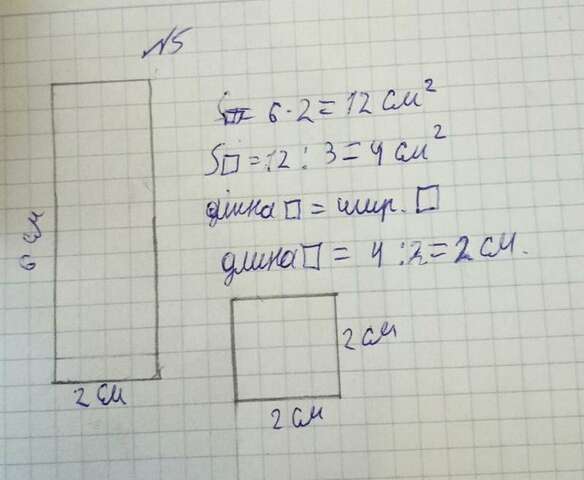 №5
S▭ = 6 · 2 = 12 см²
S□ = 12 : 3 = 4 см²
длина □ = шир. □
длина □ = 4 : 2 = 2 см.
6 см
2 см
2 см
2 см